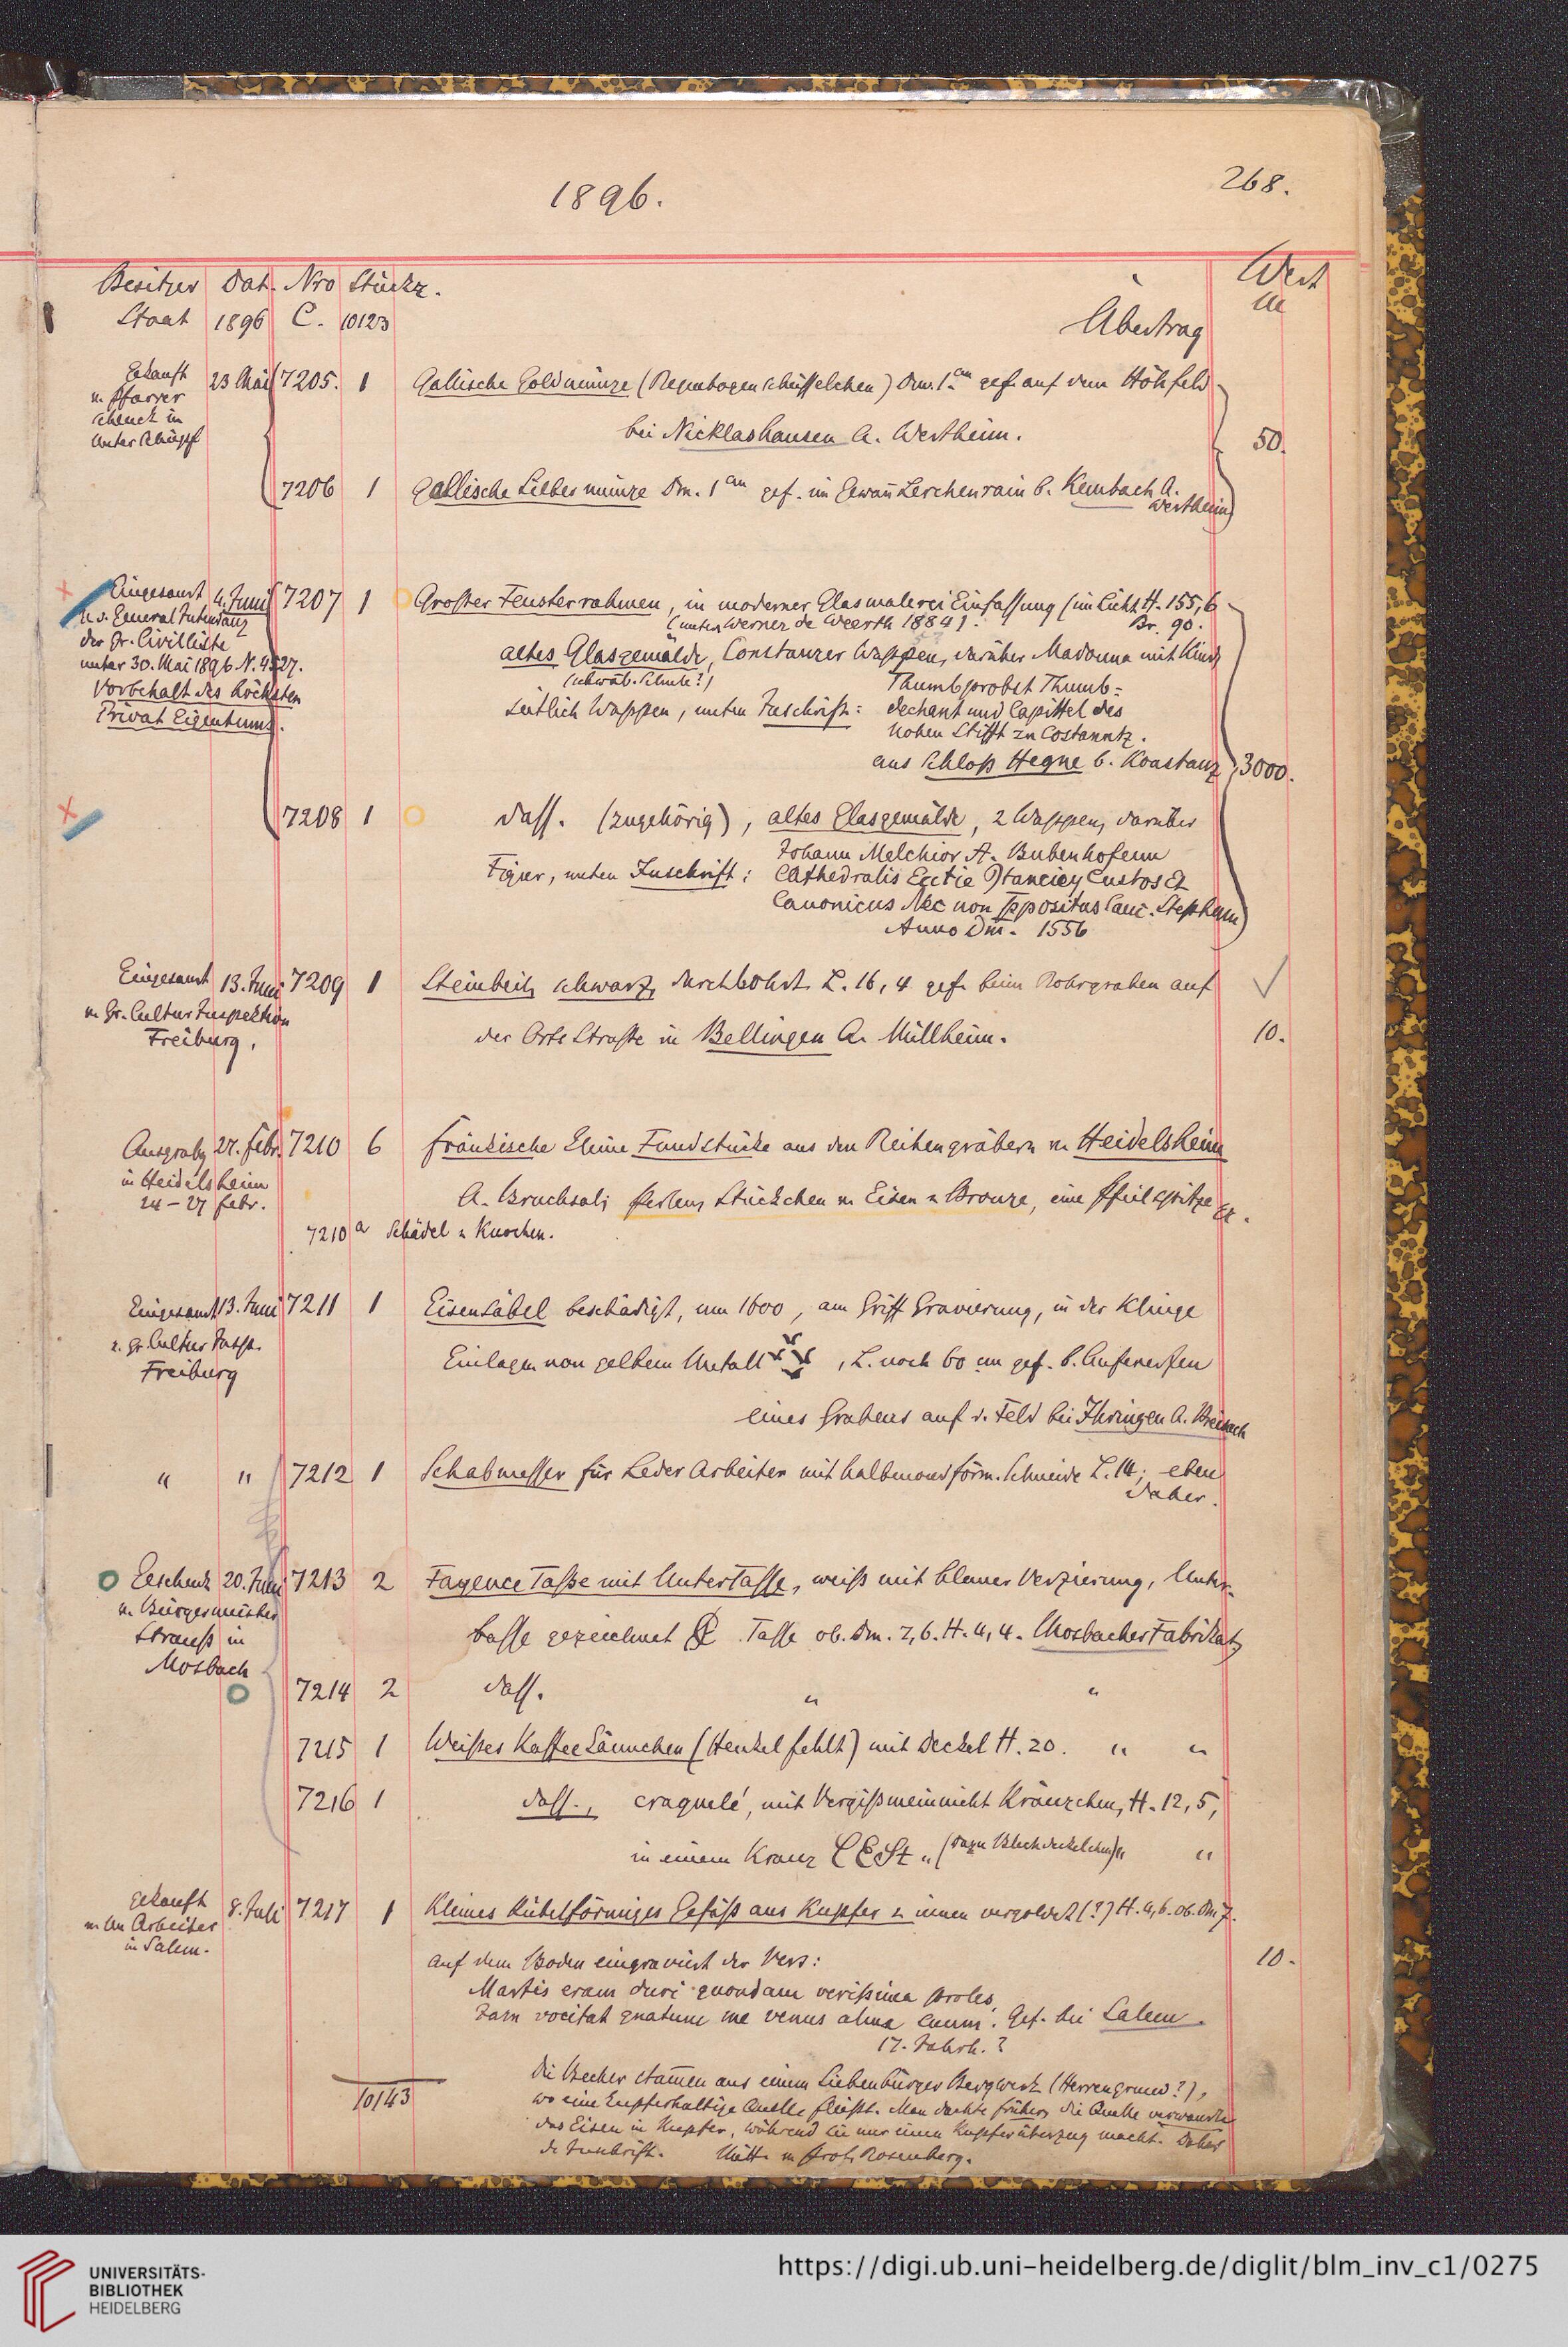 1896.
268.
Besitzer Dat. Nro Stückz. Wert
Staat 1896 C. 10123 Übertrag M
Gekauft 23 Mai 7205. 1 Gallische Goldmünze (Regenbogenschüsselchen) Dm. 1. cm gef. auf dem Höhfeld
v. Pfarrer
Schenck in
Unterschüpf
bei Nicklashausen A. Wertheim. 50.
7206 1 gallische Silbermünze Dm. 1 cm gef. im Gewañ Lerchenrain b. Kembach A.
Wertheim
Eingesandt 4. Juni 7207 1 Großer Fensterrahmen, in moderner Glasmalerei Einfassung (im Licht H. 155,6
v. d. General Intendanz (unten Werner de Weerth 1884). Br. 90.
der Gr. Civilliste
unter 30. Mai 1896 N. 4527.
Vorbehalt des höchsten
Privat Eigentums.
altes Glasgemälde, Constanzer Wappen, darüber Madonna mit Kind
(schwäb. Schule?) Thumbprobst Thumb=
seitlich Wappen, unten Inschrift: dechant und Capittel des
hohen Stifft zu Costanntz.
aus Schloß Hegne b. Konstanz 3000.
7208 1 dass. (zugehörig), altes Glasgemälde, 2 Wappen, darüber
Johann Melchior A. Bubenhofenn
Figur, unten Inschrift: Cathedralis Custos Et
Canonicus Nec non ppositus Sanc. Stephani
Anno Dm̃. 1556
Eingesandt 13. Juni 7209 1 Steinbeil, schwarz, durchbohrt L. 16,4 gef. beim Rohrgraben auf
v. Gr. Cultur Inspektion
Freiburg.
der Orts Straße in Bellingen A. Müllheim. 10.
Ausgrabg 27. Febr. 7210 6 fränkische kleine Fundstücke aus den Reihengräbern v. Heidelsheim
in Heidelsheim
24–27 Febr.
A. Bruchsal; Perlen, Stückchen v. Eisen u Bronze, eine Pfeilspitze etc.
7210 a Schädel u Knochen.
Eingesandt 13. Juni 7211 1 Eisensäbel beschädigt, um 1600, am Griff Gravierung, in der Klinge
v. gr. Cultur Insp.
Freiburg
Einlagen von gelbem Metall, L. noch 60 cm gef. b. Aufwerfen
eines Grabens auf d. Feld bei Ihringen A. Breisach
" " 7212 1 Schabmesser für Leder Arbeiten mit halbmondförm. Schneide L. 14; eben
daher.
Geschenk 20. Juni 7213 2 Fayence Tasse mit Untertasse, weiß mit blauer Verzierung, Unter-
v. Bürgermeister
Strauß in
Mosbach
tasse gezeichnet Tasse ob. Dm. 7,6. H. 4,4. Mosbacher Fabrikat,
7214 2 dass. " "
7215 1 Weißes Kaffeekännchen (Henkel fehlt) mit Deckel H. 20. " "
7216 1 dass., craquelé, mit Vergißmeinnicht Kränzchen, H. 12,5,
in einem Kranz " (dazu Blechdeckelchen) " "
gekauft 8. Juli 7217 1 Kleines kübelförmiges Gefäß aus Kupfer u innen vergoldet (?) H. 4,6. ob. Dm 7.
v. Arbeiter
in Salem.
auf dem Boden eingraviert der Vers: 10.
Martis eram duri quondam verissima proles,
Jam vocitat gnatum me venus alma suum. Gef. bei Salem.
17. Jahrh.?
Die Becher stam̃en aus einem Siebenbürger Bergwerk (Herrengrund?),
wo eine kupferhaltige Quelle fließt. Man dachte früher, die Quelle verwandle
das Eisen in Kupfer, während sie nur einen Kupferüberzug macht. Daher
d. Inschrift. Mitt. v. Prof. Rosenberg.
10143
UNIVERSITÄTS-
BIBLIOTHEK
HEIDELBERG
https://digi.ub.uni-heidelberg.de/diglit/blm_inv_c1/0275